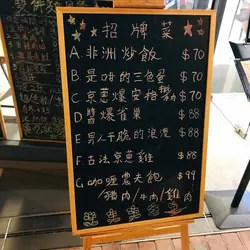 招牌菜
A. 非洲炒飯 $70
B. 是啡的三色蛋 $70
C. 京蔥爆安格斯 $70
D 醬爆雀巢 $88
E 男人干脆的浪漫 $88
F 古法京蔥雞 $88
G 咖喱農夫飽 $99
/豬肉/牛肉/雞肉